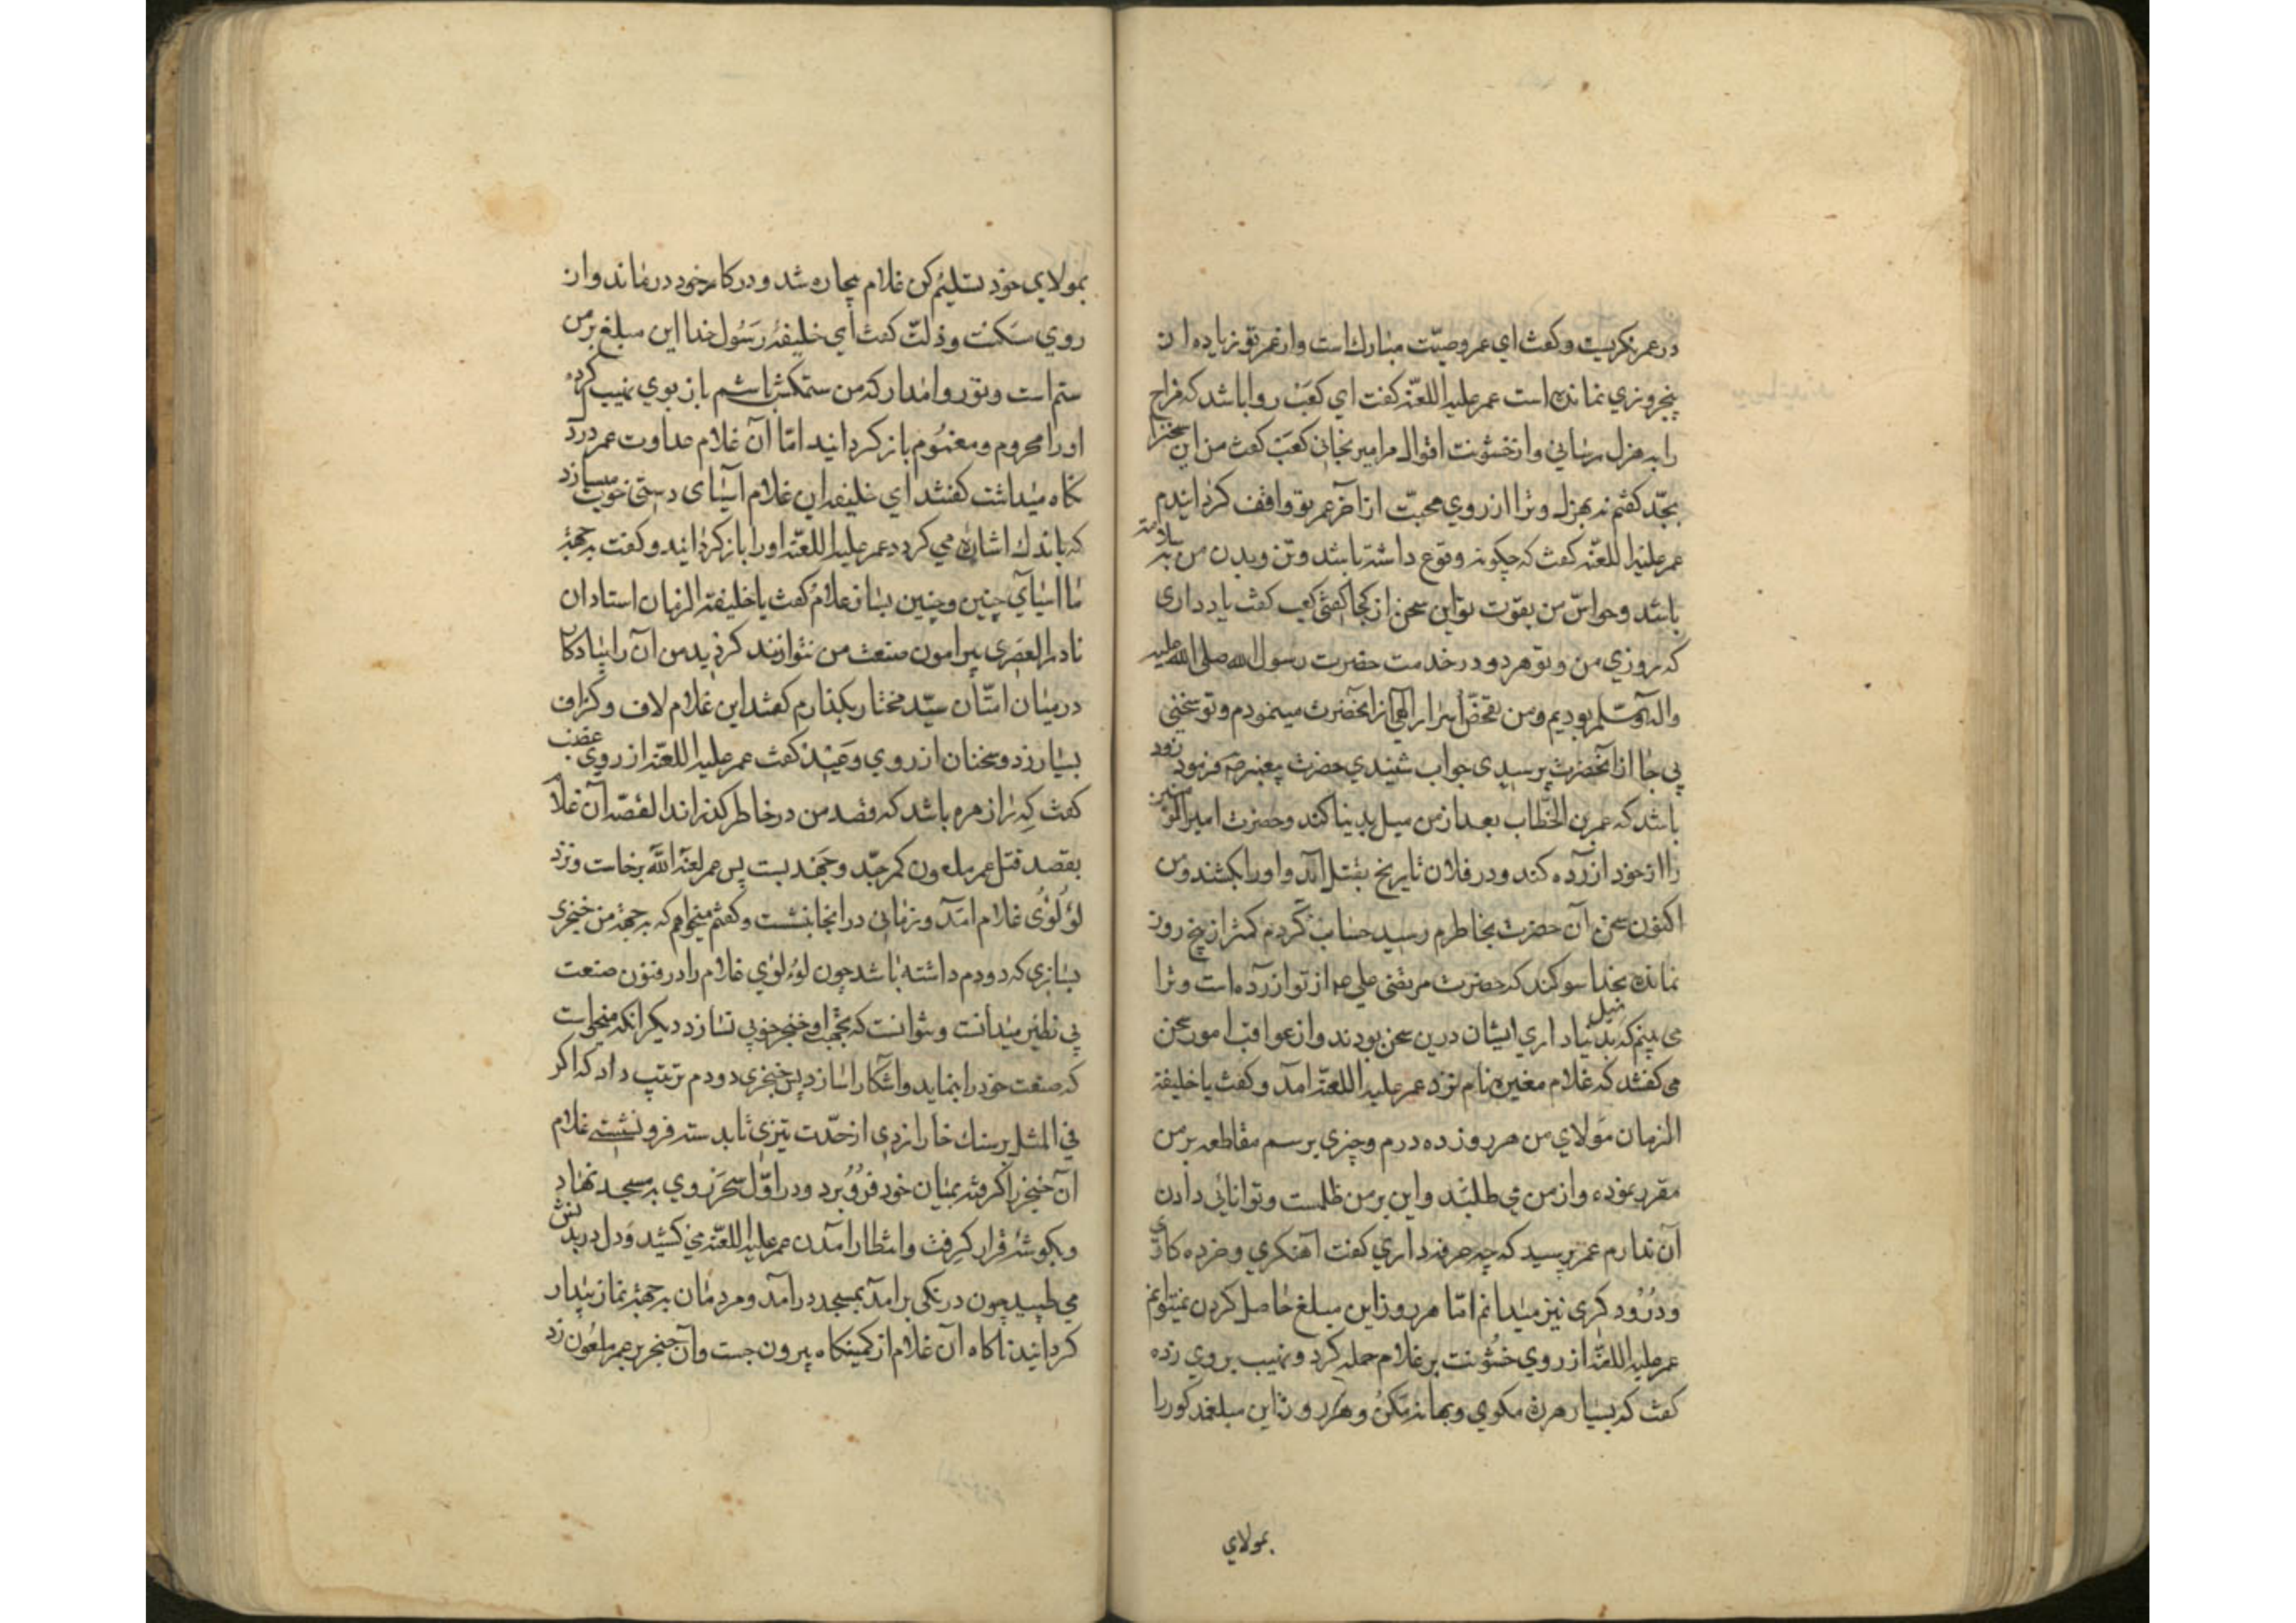 در عمر نکریست و کفت ای عمر وصیّت مبارك است و از عمر تو زیاده از
پنجروزی نمانده است عمر علیه اللعنه کفت ای کعب روا باشد که مزاح
را به هزل رسانی و از خشونت اقوال مرا میرنجانی کعب کفت من این سخنرا
بجدّ کفتم نه بهزل و ترا از روی محبّت از آخر عمر تو واقف کردانیدم
عمر علیه اللعنه کفت که چکونه وقوع داشته باشد و تن و بدن من بسلامته
باشد و حواسّ من بقوّت تو این سخن از کجا کفتی کعب کفت یاد داری
که روزی من و تو هر دو در خدمت حضرت رسول الله صلی الله علیه
واله وسلم بودیم و من تفحّص اسرار الهی از آنحضرت مینمودم و تو سخنی
بی جا از آنحضرت پرسیدی جواب شنیدی حضرت پیغمبر ص فرمود زود
باشد که عمر بن الخطّاب بعد از من میل بدینا کند و حضرت امیرالمؤمنین
را از خود ازرده کند و در فلان تاریخ بقتل آمد و او را بکشند و من
اکنون سخن آن حضرت بخاطرم رسید حساب کردم کمتر از پنج روز
نمانده بخدا سوکند که حضرت مرتضی علی ع از تو ازرده است و ترا
می بینم که میل بدنیا داری ایشان درین سخن بودند و از عواقب امور سخن
می کفتند که غلام مغیره نام نزد عمر علیه اللعنه آمد و کفت یا خلیفة
الزمان مولای من هر روز ده درم و چیزی برسم مقاطعه بر من
مقرر نموده و از من می طلبد و این بر من ظلمست و توانائی دادن
آن ندارم عمر پرسید که چه حرفه داری کفت آهنکری و خرده کاری
و درودکری نیز میدانم امّا هر روز این مبلغ حاصل کردن نمیتوانم
عمر علیه اللعنه از روی خشونت بر غلام حمله کرد و نهیب بر وی زده
کفت که بسیار هرزه مکوی و بهانه مکن و هر روز این مبلغ مذکور را
بمولای
بمولای خود تسلیم کن غلام بیچاره شد و در کار خود درماند و از
روی مسکنت و ذلت کفت ای خلیفهٔ رسول خدا این مبلغ بر من
ستم است و تو روا مدار که من ستمکش باشم باز بر وی نهیب کرده
او را محروم و مغموم باز کردانید امّا آن غلام عداوت عمر در دل
نکاه میداشت کفتند ای خلیفه این غلام آسیای دستی خوب میسازد
که باندك اشاره می کردد عمر علیه اللعنه او را باز کردانید و کفت بجهة
ما اسیای چنین و چنین بساز غلام کفت یا خلیفة الزمان استادان
نادر العصری پیرامون صنعت من نتوانند کردید من آن را بنیادکار
در میان امّتان سیّد مختار بکذارم کفتند این غلام لاف و کزاف
بسیار زد و سخنان از روی وعید کفت عمر علیه اللعنه از روی غضب
کفت که ترا زهره باشد که قصد من در خاطر کذراند القصّه آن غلام
بقصد قتل عمر ملعون کمر جدّ و جهد بست پس عمر لعنه الله برخاست و نزد
لؤلؤی غلام امد و زمانی در انجا بنشست و کفت میخواهم که بجهة من خنجری
بسازی که دو دم داشته باشد چون لؤلؤی غلام را در فنون صنعت
بی نظیر میدانست و نتوانست که بجهت او خنجر خوبی نسازد دیکر انکه میخواست
که صنعت خود را بنماید و اشکارا سازد پس خنجری دو دم ترتیب داد که اکر
فی المثل بر سنك خارا زدی از حدّت تیزی تا بدسته فرو نشستی غلام
آن خنجر را کرفته بمیان خود فرو برد و در اوّل سحر روی به مسجد نهاد
و بکوشهٔ قرار کرفت و انتظار امدن عمر علیه اللعنه می کشید و دل در بدنش
می طپید چون درنکی برامد بمسجد درآمد و مردمان بجهة نماز بیدار
کردانید ناکاه آن غلام از کمینکاه بیرون جست و آن خنجر بر عمر ملعون زد